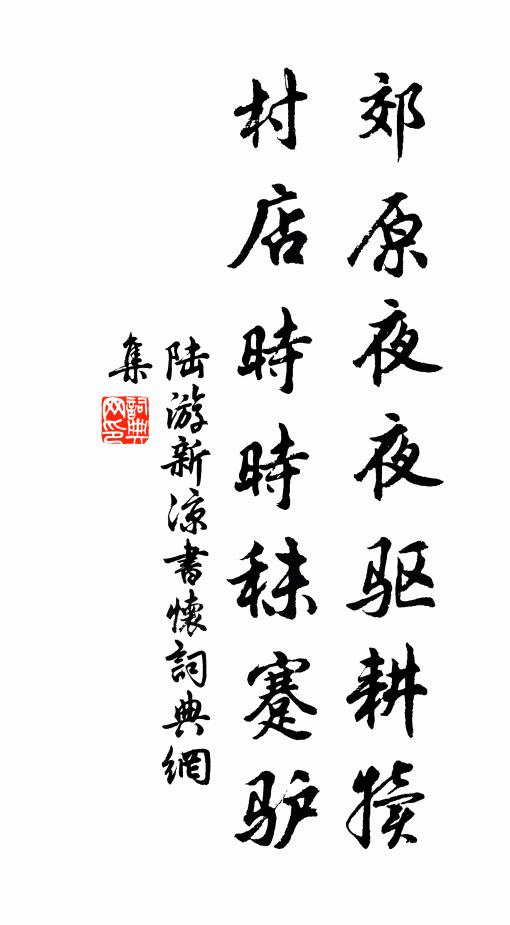 郊原夜夜驱耕犊
村店時時秣蹇驴
陆游新凉書懷詞典網
集
詞典網印